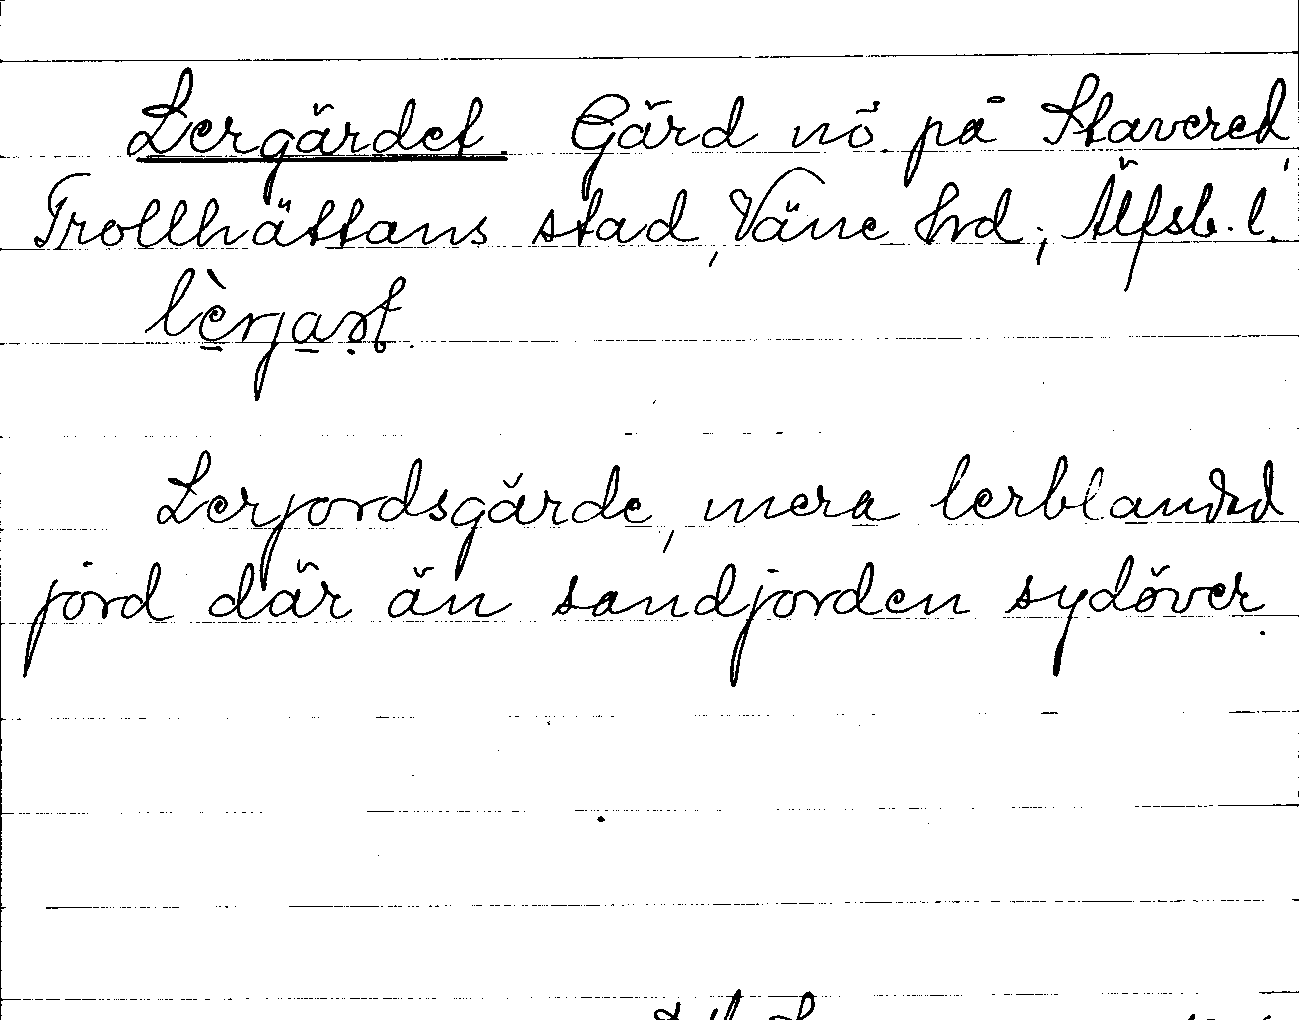 Lergärdet. Gärd nö. på Stavered,
Trollhättans stad, Väne hrd; Älfsb. l.
lèrjaṣt.
Lerjordsgärde, mera lerblandad
jord där än sandjorden sydöver.